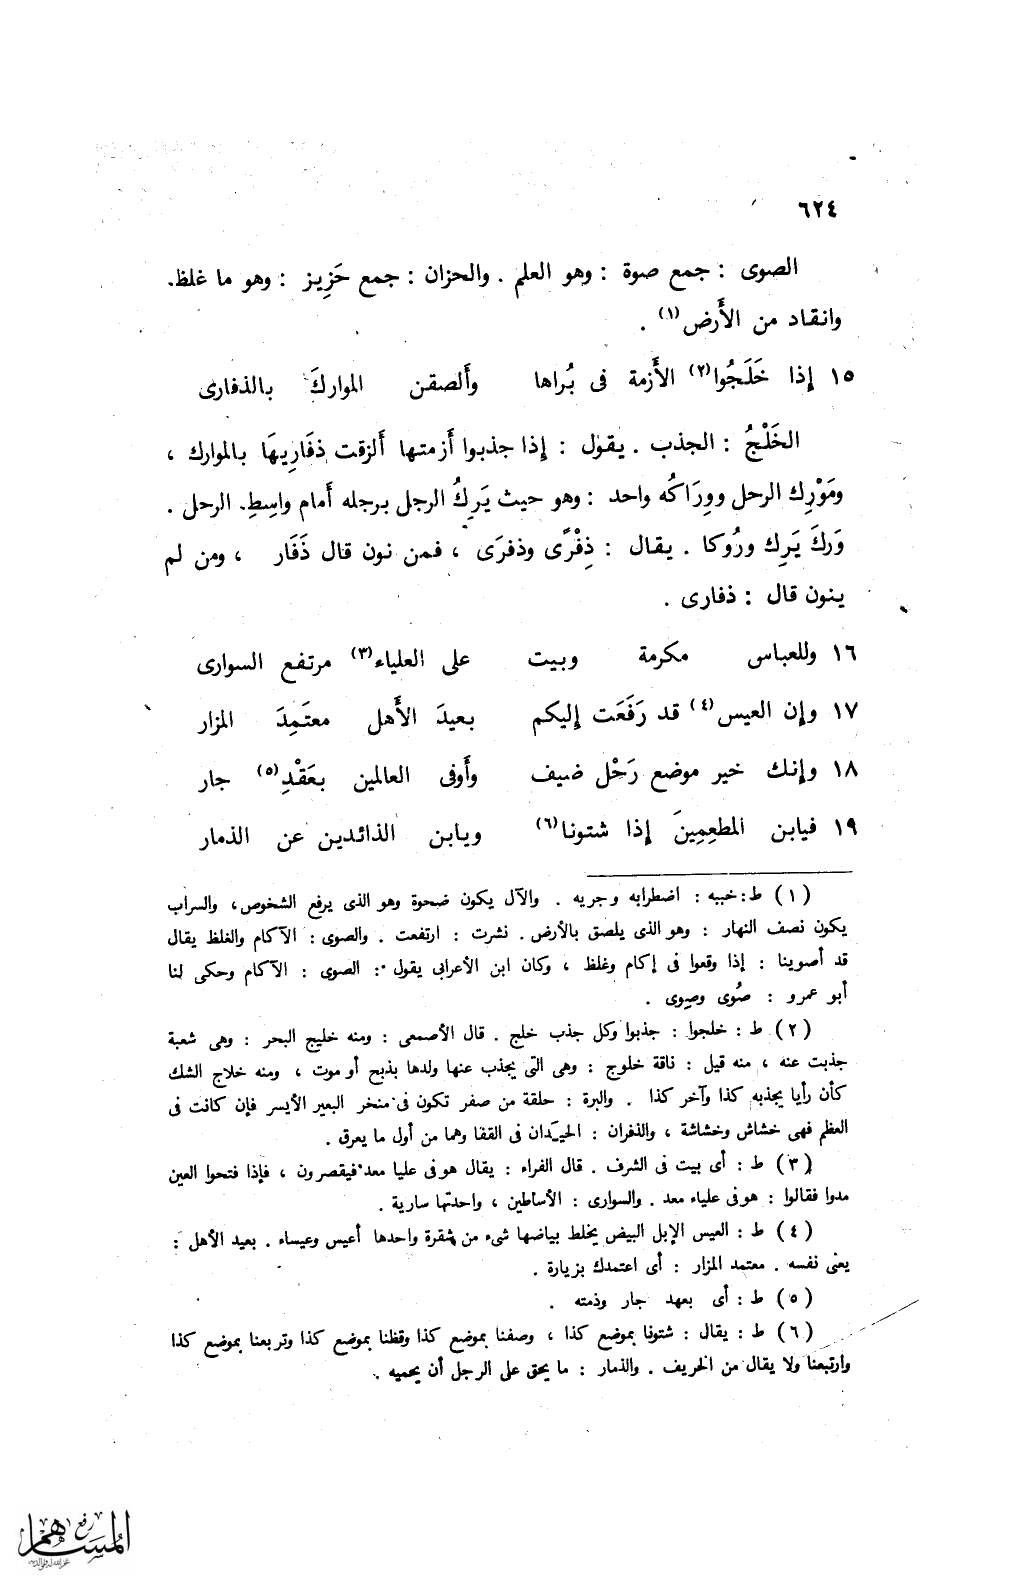 ٦٢٤
الصوى : جمع صوة : وهو العلم . والحزان : جمع حَزِيز : وهو ما غلظ.
وانقاد من الأَرض(١) .
١٥ إذا خَلَجُوا(٢) الأَزمة فى بُراها وأَلصقن المواركَ بالذفارى
الخَلْجُ : الجذب . يقول : إذا جذبوا أَزمتها أَلزقت ذفَارِيهَا بالموارك ،
ومَوْرِك الرحل ووِرَاكُه واحد : وهو حيث يَرِكُ الرجل برجله أَمام واسِطِ. الرحل .
وَركَ يَرِك ورُوكا . يقال : ذِفْرًى وذفرَى ، فمن نون قال ذَفَار ، ومن لم
ينون قال : ذفارى .
١٦ وللعباس مكرمة وبيت على العلياء(٣) مرتفع السوارى
١٧ وإن العيس(٤) قد رَفَعَت إليكم بعيدَ الأَهل معتَمِدَ المزار
١٨ وإنك خير موضع رَحْل ضيف وأَوفى العالمين بعَقْدِ(٥) جار
١٩ فيابن المطعِمِينَ إذا شتونا(٦) ويابن الذائدين عن الذمار
(١) ط : خببه : اضطرابه وجريه . والآل يكون ضحوة وهو الذى يرفع الشخوص، والسراب
يكون نصف النهار : وهو الذى يلصق بالأرض. نشرت : ارتفعت . والصوى : الآكام والغلظ يقال
قد أصوينا : إذا وقعوا فى إكام وغلظ ، وكان ابن الأعرابى يقول : الصوى : الآكام وحكى لنا
أبو عمرو : صُوى وصِوى .
(٢) ط : خلجوا : جذبوا وكل جذب خلج . قال الأصمعى : ومنه خليج البحر : وهى شعبة
جذبت عنه ، منه قيل : ناقة خلوج : وهى التى يجذب عنها ولدها بذبح أو موت ، ومنه خلاج الشك
كأن رأيا يجذبه كذا وآخر كذا . والبرة : حلقة من صفر تكون فى منخر البعير الأيسر فإن كانت فى
العظم فهى خشاش وخشاشة ، والذفران : الحيدان فى القفا وهما من أول ما يعرق .
(٣) ط : أى بيت فى الشرف . قال الفراء : يقال هو فى عليا معد فيقصرون ، فإذا فتحوا العين
مدوا فقالوا : هو فى علياء معد . والسوارى : الأساطين ، واحدتها سارية .
(٤) ط : العيس الإبل البيض يخلط بياضها شىء من شقرة واحدها أعيس وعيساء . بعيد الأهل :
يعنى نفسه . معتمد المزار : أى اعتمدك بزيارة .
(٥) ط : أى بعهد جار وذمته .
(٦) ط : يقال : شتونا بموضع كذا ، وصفنا بموضع كذا وقظنا بموضع كذا وتربعنا بموضع كذا
وارتبعنا ولا يقال من الخريف . والذمار : ما يحق على الرجل أن يحميه .
رفع
المساهم